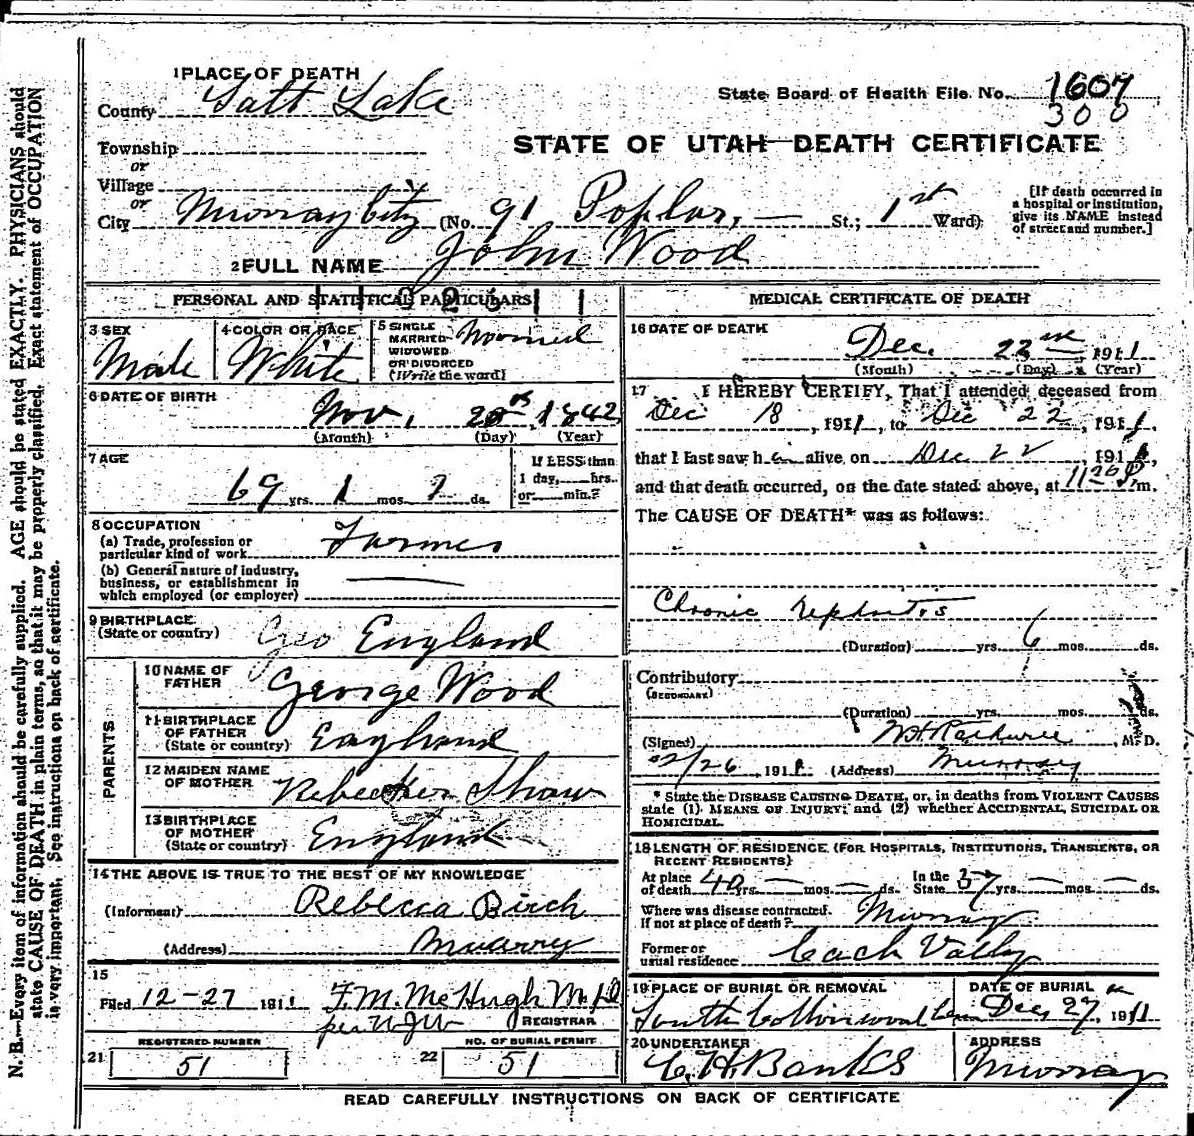 N. B.—Every item of information should be carefully supplied. AGE should be stated EXACTLY. PHYSICIANS should
state CAUSE OF DEATH in plain terms, so that it may be properly classified. Exact statement of OCCUPATION
is very important. See instructions on back of certificate.
1 PLACE OF DEATH
County Salt Lake
State Board of Health File No. 1607
300
STATE OF UTAH—DEATH CERTIFICATE
Township
or
Village
or
City Murray City (No. 91 Poplar, — St.; 1st Ward)
[If death occurred in
a hospital or institution,
give its NAME instead
of street and number.]
2 FULL NAME John Wood
PERSONAL AND STATISTICAL PARTICULARS
3 SEX Male
4 COLOR OR RACE White
5 SINGLE
MARRIED
WIDOWED
OR DIVORCED
(Write the word)
Married
6 DATE OF BIRTH
Nov. 20, 1842
(Month) (Day) (Year)
7 AGE
69 yrs. 1 mos. 2 ds.
If LESS than
1 day, hrs.
or min.?
8 OCCUPATION
(a) Trade, profession or
particular kind of work Farmer
(b) General nature of industry,
business, or establishment in
which employed (or employer)
9 BIRTHPLACE
(State or country) Geo England
PARENTS
10 NAME OF
FATHER George Wood
11 BIRTHPLACE
OF FATHER
(State or country) England
12 MAIDEN NAME
OF MOTHER Rebecca Shaw
13 BIRTHPLACE
OF MOTHER
(State or country) England
14 THE ABOVE IS TRUE TO THE BEST OF MY KNOWLEDGE
(Informant) Rebecca Birch
(Address) Murray
15
Filed 12-27 1911 F. M. McHugh M.D.
per
REGISTRAR
21 REGISTERED NUMBER
51
22 NO. OF BURIAL PERMIT
51
MEDICAL CERTIFICATE OF DEATH
16 DATE OF DEATH
Dec. 22nd 1911
(Month) (Day) (Year)
17 I HEREBY CERTIFY, That I attended deceased from
Dec 18, 1911, to Dec 22, 1911,
that I last saw him alive on Dec 22 1911,
and that death occurred, on the date stated above, at 1120 P m.
The CAUSE OF DEATH* was as follows:
Chronic nephritis
(Duration) yrs. 6 mos. ds.
Contributory
(SECONDARY)
(Duration) yrs. mos. ds.
(Signed) M. D.
12/26 1911 (Address) Murray
* State the DISEASE CAUSING DEATH, or, in deaths from VIOLENT CAUSES
state (1) MEANS OF INJURY; and (2) whether ACCIDENTAL, SUICIDAL OR
HOMICIDAL.
18 LENGTH OF RESIDENCE (FOR HOSPITALS, INSTITUTIONS, TRANSIENTS, OR
RECENT RESIDENTS)
At place
of death 40 yrs. — mos. — ds. In the
State 57 yrs. — mos. — ds.
Where was disease contracted.
If not at place of death? Murray
Former or
usual residence Cach Vally
19 PLACE OF BURIAL OR REMOVAL
South Cottonwood Cem
DATE OF BURIAL
Dec 27, 1911
20 UNDERTAKER
C. H. Banks
ADDRESS
Murray
READ CAREFULLY INSTRUCTIONS ON BACK OF CERTIFICATE